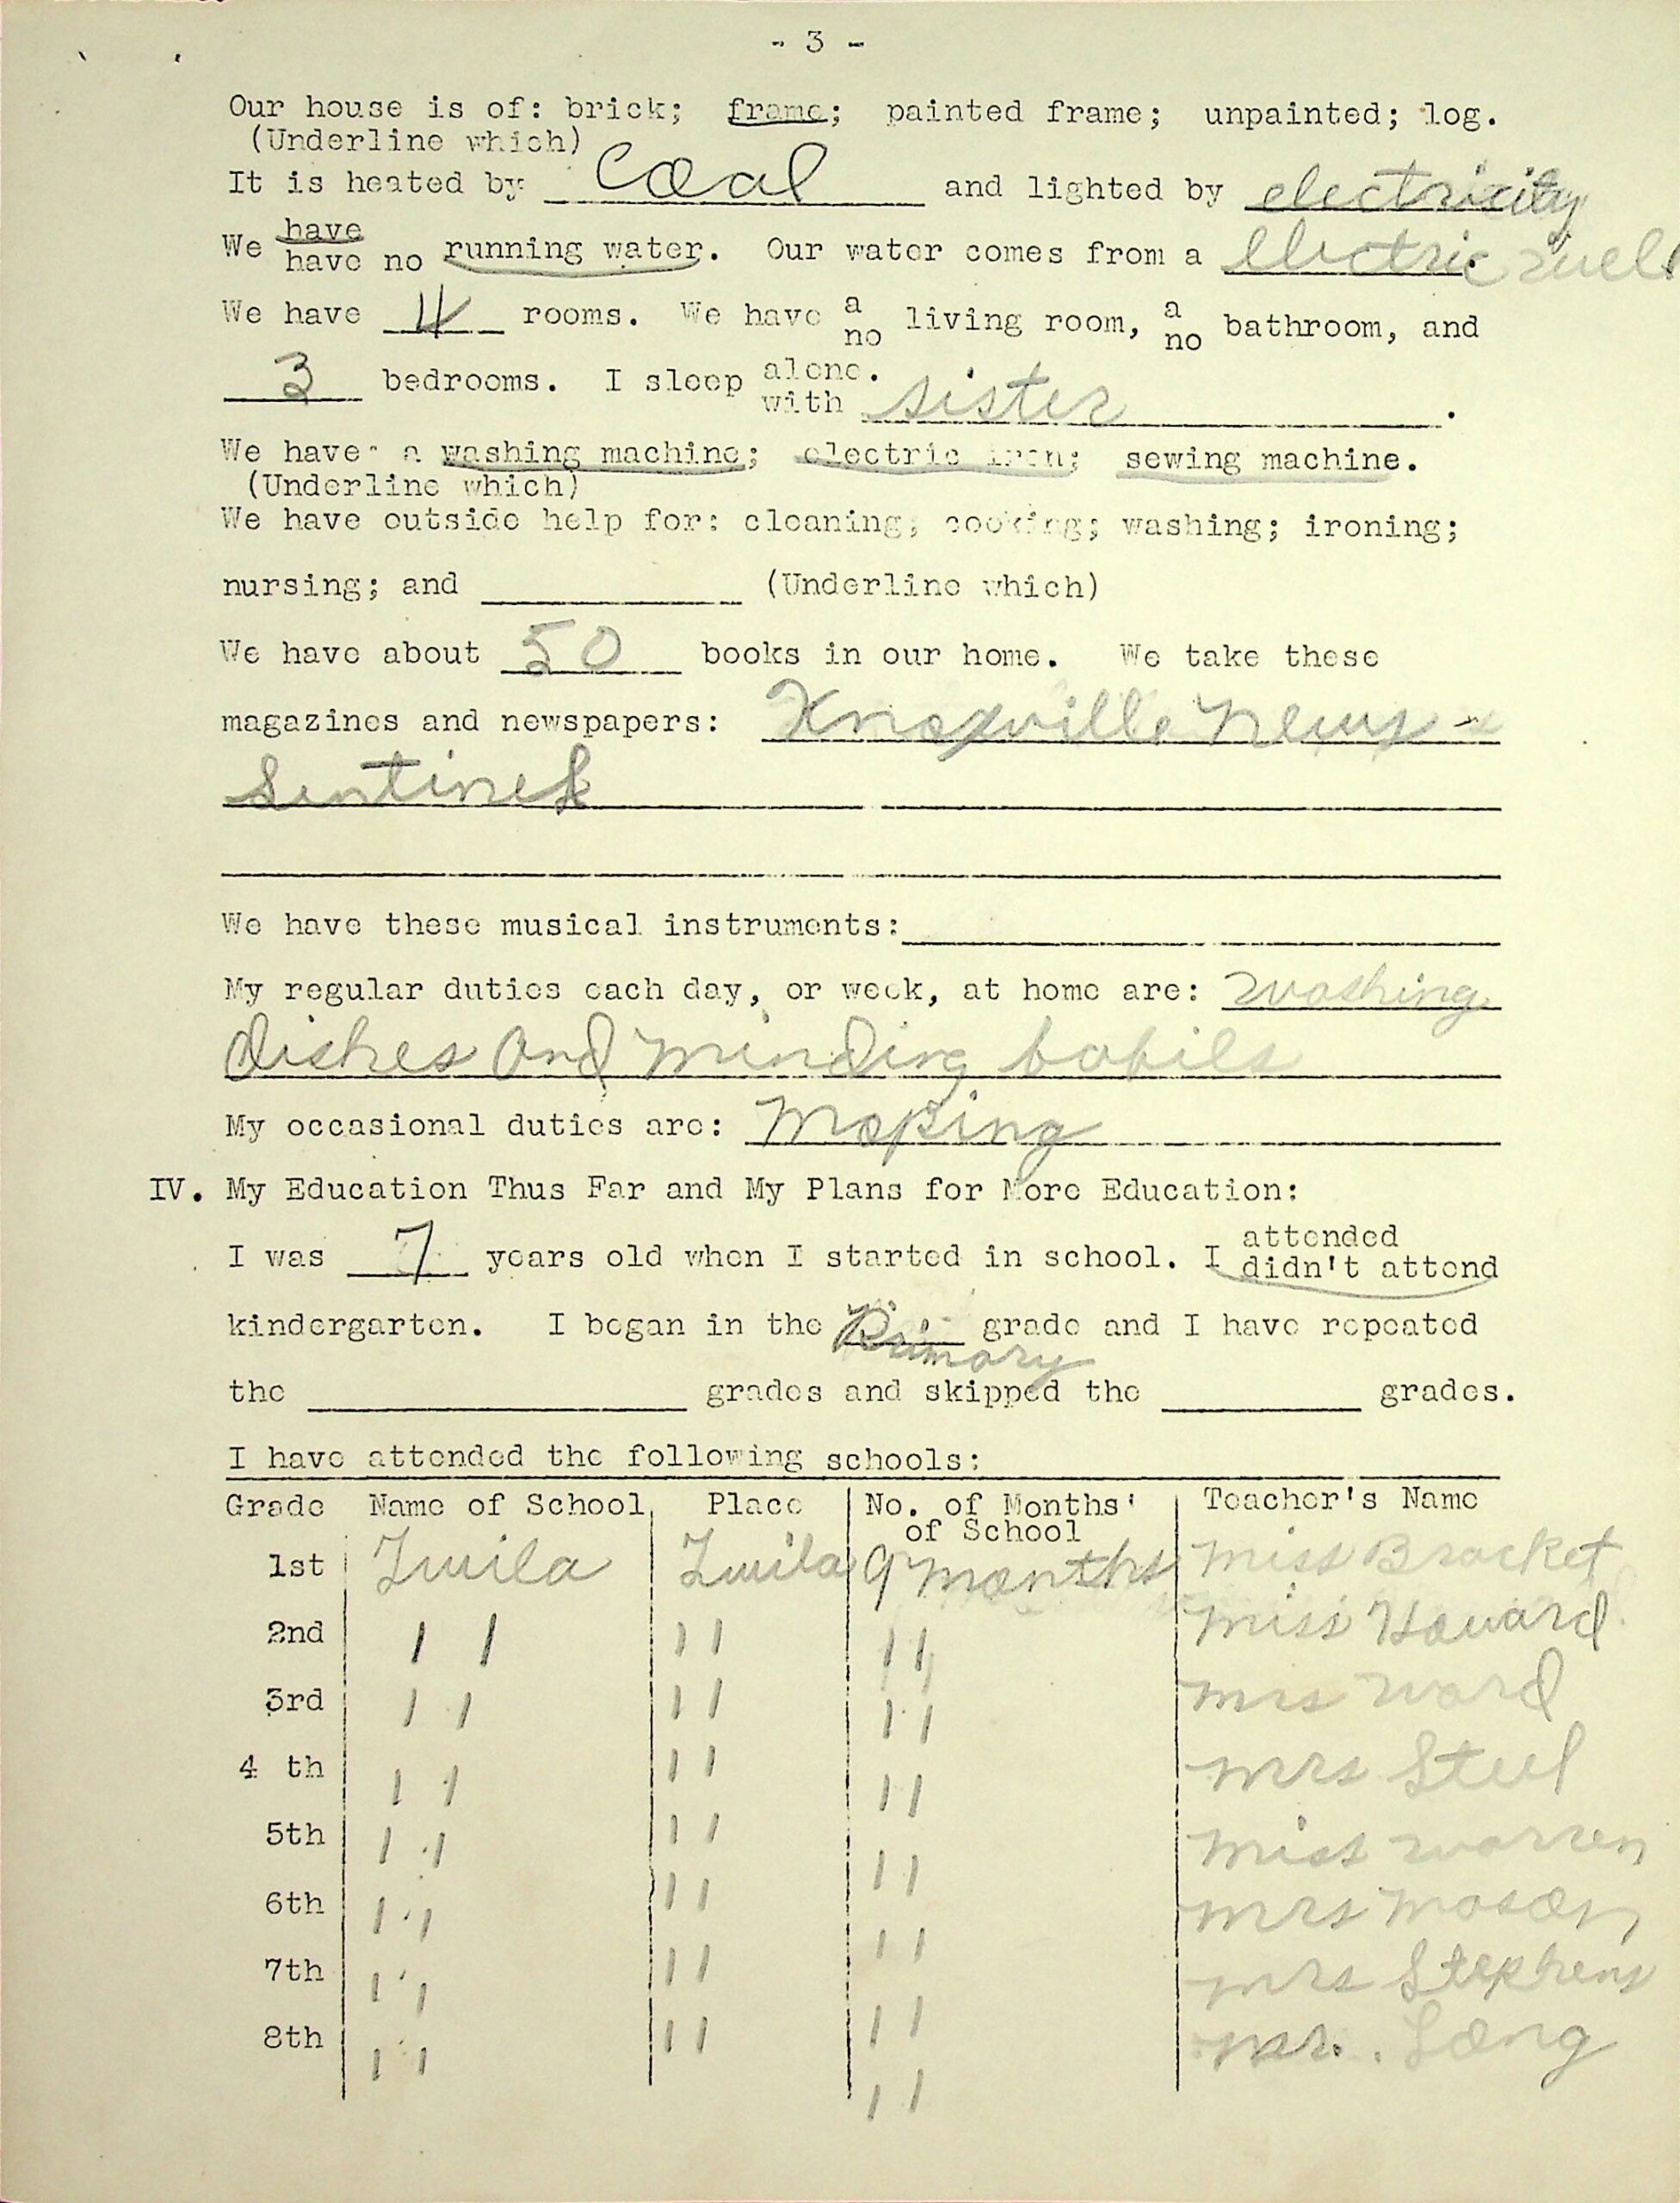 - 3 -
Our house is of: brick; frame; painted frame; unpainted; log.
(Underline which)
It is heated by Coal and lighted by electricity
We have
have no running water. Our water comes from a electric well
We have 4 rooms. We have a
no living room, a
no bathroom, and
3 bedrooms. I sleep alone.
with sister.
We have a washing machine; electric iron; sewing machine.
(Underline which)
We have outside help for: cleaning; cooking; washing; ironing;
nursing; and ____ (Underline which)
We have about 50 books in our home. We take these
magazines and newspapers: Knoxville News -
Sentinel
We have these musical instruments:
My regular duties each day, or week, at home are: washing
dishes and minding babies
My occasional duties are: Moping
IV. My Education Thus Far and My Plans for More Education:
I was 7 years old when I started in school. I attended
didn't attend
kindergarten. I began in the Primary grade and I have repeated
the ____ grades and skipped the ____ grades.
I have attended the following schools:
Grade Name of School Place No. of Months' of School Teacher's Name
1st Zwila Zwila 9 months Miss Bracket
2nd " " " Miss Howard
3rd " " " Mrs Ward
4 th " " " Mrs Steel
5th " " " Miss Warren
6th " " " Mrs Mason
7th " " " Mrs Stephens
8th " " " Mr. Long